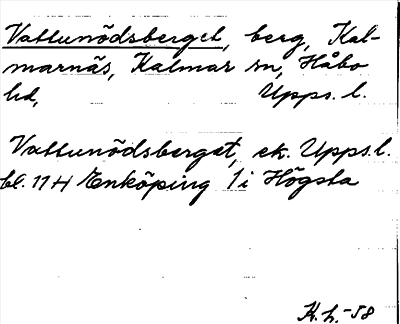 Vattunödsberget, berg, Kal-
marnäs, Kalmar sn, Håbo
hd, Upps. l.
Vattunödsberget, ek. Upps. l.
bl. 11 H Enköping 1 i Högsta
K. L. -58